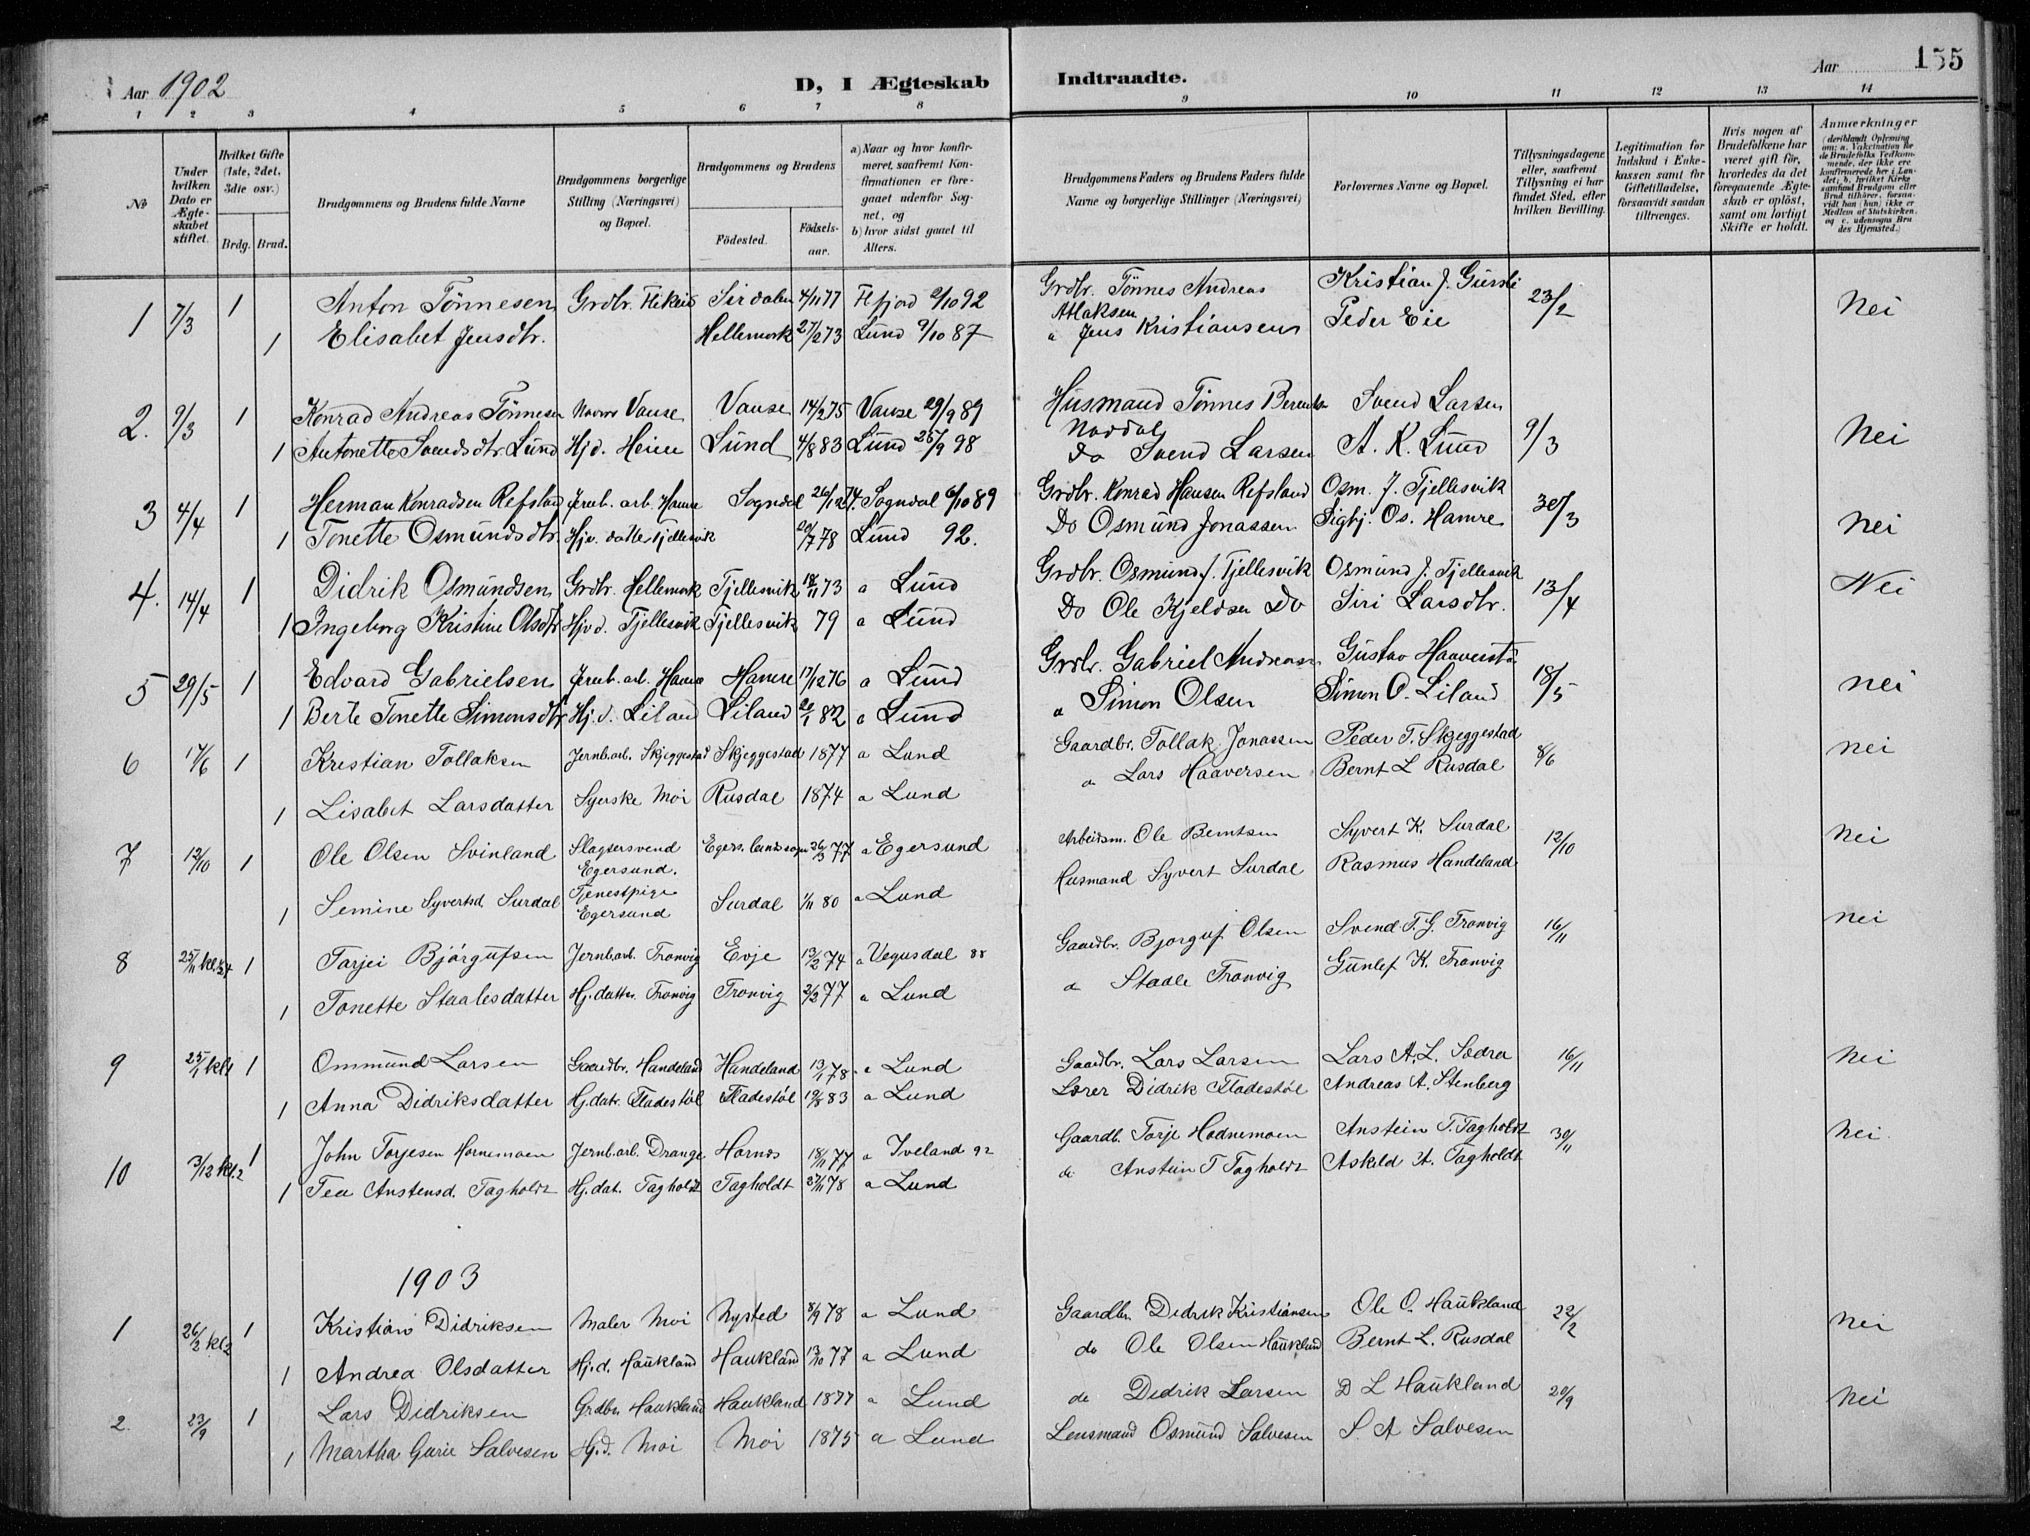 Aar 1902
D, I Ægteskab
Indtraadte.
Aar
155
1 2 3 4 5 6 7 8 9 10 11 12 13 14
No
Under hvilken Dato er Ægteskabet stiftet.
Hvilket Gifte (1ste, 2det, 3die osv.)
Brdg. Brud.
Brudgommens og Brudens fulde Navne
Brudgommens borgerlige Stilling (Næringsvei) og Bopæl.
Brudgommens og Brudens
Födested.
Födselsaar.
a) Naar og hvor konfirmeret, saafremt Konfirmationen er foregaaet udenfor Sognet, og
b) hvor sidst gaaet til Alters.
Brudgommens Faders og Brudens Faders fulde Navne og borgerlige Stillinger (Næringsvei)
Forlovernes Navne og Bopæl.
Tillysningsdagene eller, saafremt Tillysning ei har fundet Sted, efter hvilken Bevilling.
Legitimation for Indskud i Enkekassen samt for Giftetilladelse, forsaavidt saadan tiltrænges.
Hvis nogen af Brudefolkene har været gift för, hvorledes da det foregaaende Ægteskab er oplöst, samt om lovligt Skifte er holdt.
Anmærkninger
(deriblandt Oplysning om: a. Vakcination for de Brudefolks Vedkommende, der ikke ere konfirmerede her i Landet; b. hvilket Kirkesamfund Brudgom eller Brud tilhører, forsaavidt han (hun) ikke er Medlem af Statskirken, og c. udensogns Brudes Hjemsted.)
1 7/3 1 Anton Tönnesen Grdbr. Sirdalen 4/11 77 Hfjord 92 Grdbr. Tönnes Andreas Atlaksen Kristian J. Gursli 23/2 Nei
1 Elisabet Jensdtr. Hellemork 27/2 73 Lund 9/10 87 a Jens Kristiansen Peder Eie
2. 9/3 1 Konrad Andreas Tönnesen Vanse Vanse 14/2 75 Vanse 29/9 89 Husmand Tönnes Svend Larsen 9/3 Nei
1 Antonette Svendsdtr. Lund Hjd. Heien Lund 4/8 83 Lund 25/9 98 Do Svend Larsen A. K. Lund
3 4/4 1 Herman Konradsen Refsland Jernb. arb. Hamre Sogndal 26/12 74. Sogndal 6/10 89 Grdbr. Konrad Hansen Refsland Osm. J. Tjellesvik 30/3 Nei
1 Tonette Osmundsdtr. Hjv. datter Tjellesvik 20/7 78 Lund 92. Do Osmund Jonassen Sigbj. Os. Hamre
4. 14/4 1 Didrik Osmundsen Grdbr. Hellemork Tjellesvik 18/11 73 a Lund Grdbr. Osmund J. Tjellesvik Osmund J. Tjellesvik 13/4 Nei
1 Ingeborg Kristine Olsdtr Hjvd. Tjellesvik Tjellesvik 79 a Lund Do Ole Kjeldsen Do Siri Larsdtr.
5 29/5 1 Edvard Gabrielsen Jernb. arb. Hamre Hamre 17/12 76 a Lund Grdbr. Gabriel Andreasen Gustav 18/5 nei
1 Berte Tonette Simonsdtr Hj. d. Liland Liland 20/1 82 a Lund a Simon Olsen Simon O. Liland
6 17/6 1 Kristian Tollaksen Jernb.arb. Skjeggestad Skjeggestad 1877 a Lund Gaardbr. Tollak Jonassen Peder T. Skjeggestad 8/6 nei
1 Lisabet Larsdatter Syerske Moi Rusdal 1874 a Lund a Lars Haaversen Bernt L Rusdal
7 12/10 1 Ole Olsen Svinland Slagtersvend Egersund. Egers. landsogn 26/3 77 a Egersund Arbeidsm. Ole Berntsen Syvert K. Surdal 12/10 nei
1 Semine Syvertsd Surdal Tjenestpige Egersund Surdal 1/11 80 a Lund Husmand Syvert Surdal Rasmus Handeland
8 25/11 1 Tarjei Bjørgufsen Jernb.arb. Tronvig Evje 13/2 74 a Vegusdal 88 Gaardbr. Bjorguf Olsen Svend T. G. Tronvig 16/11 nei
1 Tonette Staalesdatter Hj. datter Tronvig Tronvig 2/2 77 a Lund a Staale Tronvig Gunlef K. Tronvig
9 1 Ommund Larsen Gaardbr. Handeland Handeland 13/1 78 a Lund Gaardbr. Lars Larsen Lars A. L. Sødra 16/11 nei
1 Anna Didriksdatter Hj.datr. Fladestöl Fladestöl 19/8 83 a Lund Lærer Didrik Fladestöl Andreas A. Stenberg
10 3/12 kl. 2 1 John Torjesen Hornemoen Jernb.arb. Drange Hornes 18/11 77 a Iveland 92 Gaardb. Torje Hodnemoen Anstein T. Tagholdt 30/11 nei
1 Tea Anstensd. Tagholdt Hj. dat. Tagholdt Tagholdt 27/11 78 a Lund do Anstein T Tagholdt Askeld A. Tagholdt
1903
1 26/2 kl 2 1 Kristian Didriksen Maler Moi Nysted 8/9 78 a Lund Gaardbr Didrik Kristiansen Ole O. Haukland 22/2 nei
1 Andrea Olsdatter Hj. d. Haukland Haukland 13/10 77 a Lund do Ole Olsen Haukland Bernt L. Rusdal
2. 23/9 1 Lars Didriksen Grdbr Haukland Haukland 1877 a Lund do Didrik Larsen D L Haukland 20/9 nei
1 Martha Gurie Salvesen Hj.d. Moi Moi 1875 a Lund Lensmand Osmund Salvesen S A Salvesen